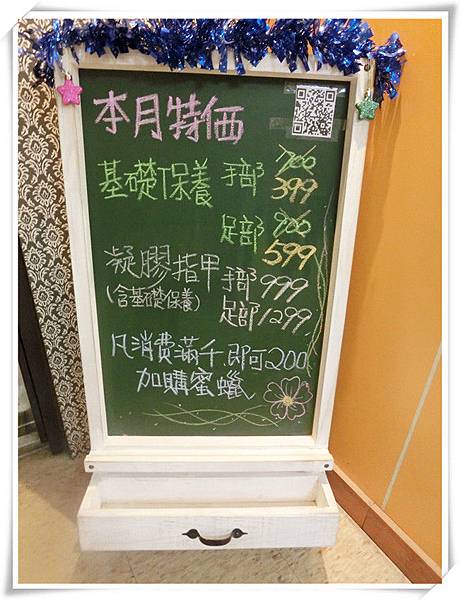 本月特価
基礎保養 手部 700
399
足部 900
599
凝膠指甲 手部 999
(含基礎保養) 足部 1299
凡消費滿千,即可200
加購蜜蠟